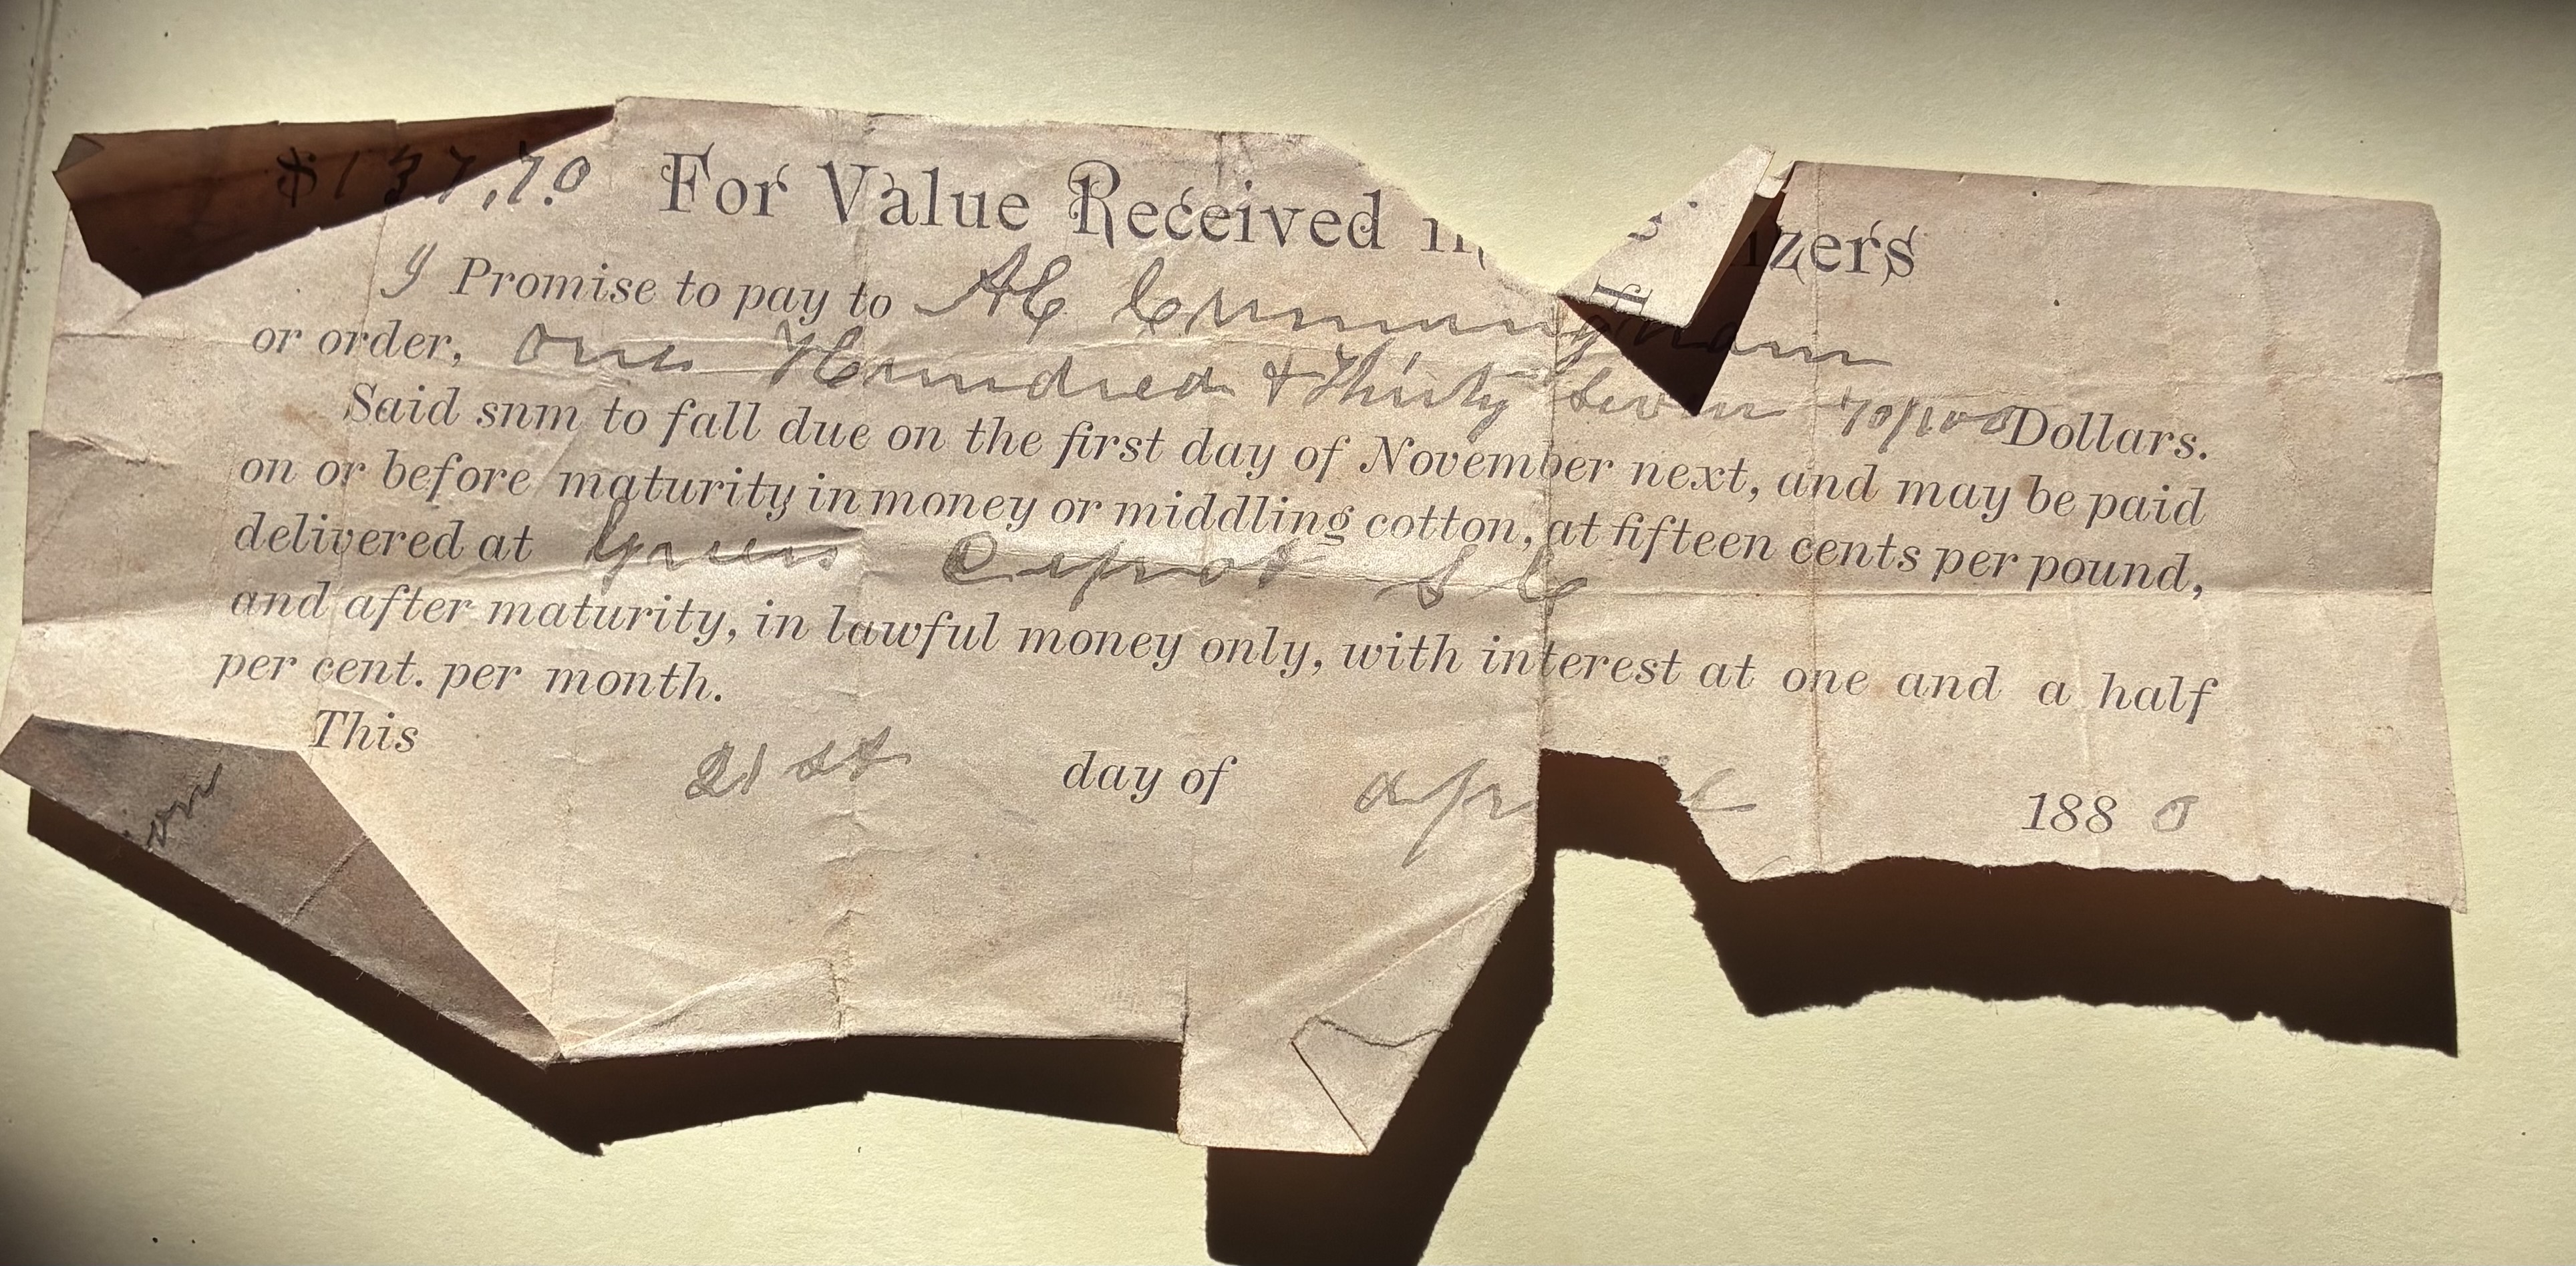 $137,70 For Value Received in izers
I Promise to pay to AC Cunningham
or order, One Hundred & Thirty Seven 70/100 Dollars.
Said snm to fall due on the first day of November next, and may be paid
on or before maturity in money or middling cotton, at fifteen cents per pound,
delivered at Greers Depot S C
and after maturity, in lawful money only, with interest at one and a half
per cent. per month.
This 21st day of April 1880